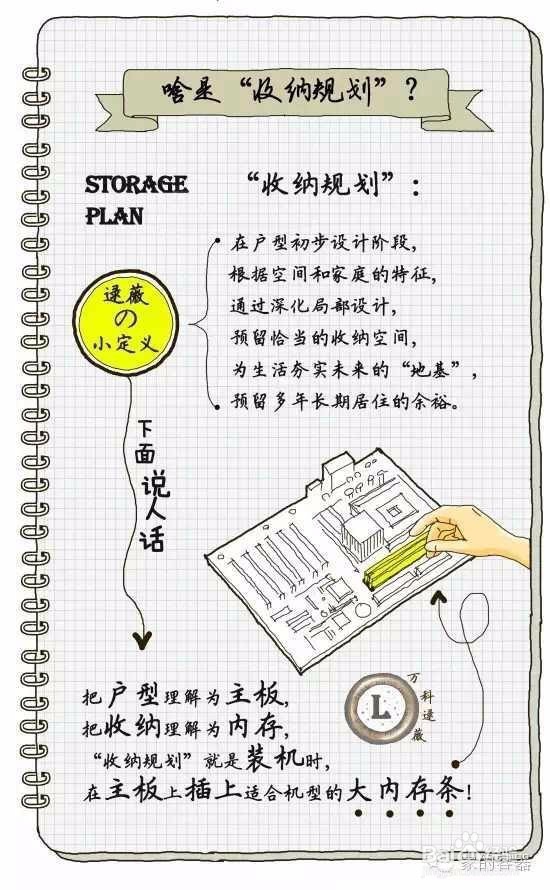 啥是“收纳规划”？
STORAGE
PLAN
“收纳规划”：
逯薇
の
小定义
在户型初步设计阶段，
根据空间和家庭的特征，
通过深化局部设计，
预留恰当的收纳空间，
为生活夯实未来的“地基”，
预留多年长期居住的余裕。
下面说人话
把户型理解为主板，
把收纳理解为内存，
“收纳规划”就是装机时，
在主板上插上适合机型的大内存条！
L
万科逯薇
家的容器